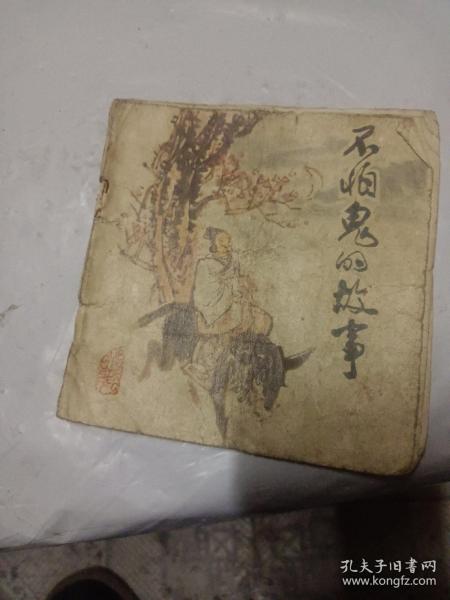 不怕鬼的故事
孔夫子旧书网
www.kongfz.com